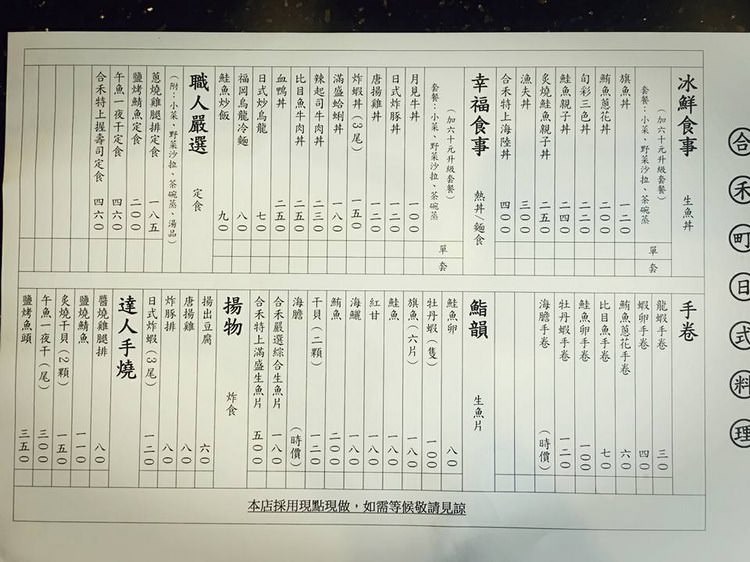 合禾町日式料理
冰鮮食事 生魚丼
(加六十元升級套餐)
套餐:小菜、野菜沙拉、茶碗蒸
單 套
旗魚丼 一二〇
鮪魚蔥花丼 二〇〇
旬彩三色丼 二二〇
鮭魚親子丼 二四〇
炙燒鮭魚親子丼 二五〇
漁夫丼 三〇〇
合禾特上海陸丼 四〇〇
幸福食事 熱丼/麵食
(加六十元升級套餐)
套餐:小菜、野菜沙拉、茶碗蒸
單 套
月見牛丼 一〇〇
日式炸豚丼 一二〇
唐揚雞丼 一二〇
炸蝦丼(3尾) 一五〇
滿盛蛤蜊丼 一八〇
辣起司牛肉丼 二三〇
比目魚牛肉丼 二五〇
血鴨丼 二五〇
日式炒烏龍 七〇
福岡烏龍冷麵 八〇
鮭魚炒飯 九〇
職人嚴選 定食
(附:小菜、野菜沙拉、茶碗蒸、湯品)
蔥燒雞腿排定食 一八五
鹽烤鯖魚定食 二〇〇
午魚一夜干定食 四六〇
合禾特上握壽司定食 四六〇
手卷
龍蝦手卷 三〇
蝦卵手卷 四〇
鮪魚蔥花手卷 六〇
比目魚手卷 七〇
鮭魚卵手卷 一〇〇
牡丹蝦手卷 一二〇
海膽手卷 (時價)
鮨韻 生魚片
鮭魚卵 八〇
牡丹蝦(隻) 一〇〇
旗魚(六片) 一八〇
鮭魚 一八〇
紅甘 一八〇
海鱺 一八〇
鮪魚 二〇〇
干貝(二顆) 一二〇
海膽 (時價)
合禾嚴選綜合生魚片 一八〇
合禾特上滿盛生魚片 五〇〇
揚物 炸食
揚出豆腐 六〇
唐揚雞 八〇
炸豚排 八〇
日式炸蝦(3尾) 一二〇
達人手燒
醬燒雞腿排 八〇
鹽燒鯖魚 一一〇
炙燒干貝(2顆) 一五〇
午魚一夜干(尾) 三〇〇
鹽烤魚頭 三五〇
本店採用現點現做,如需等候敬請見諒